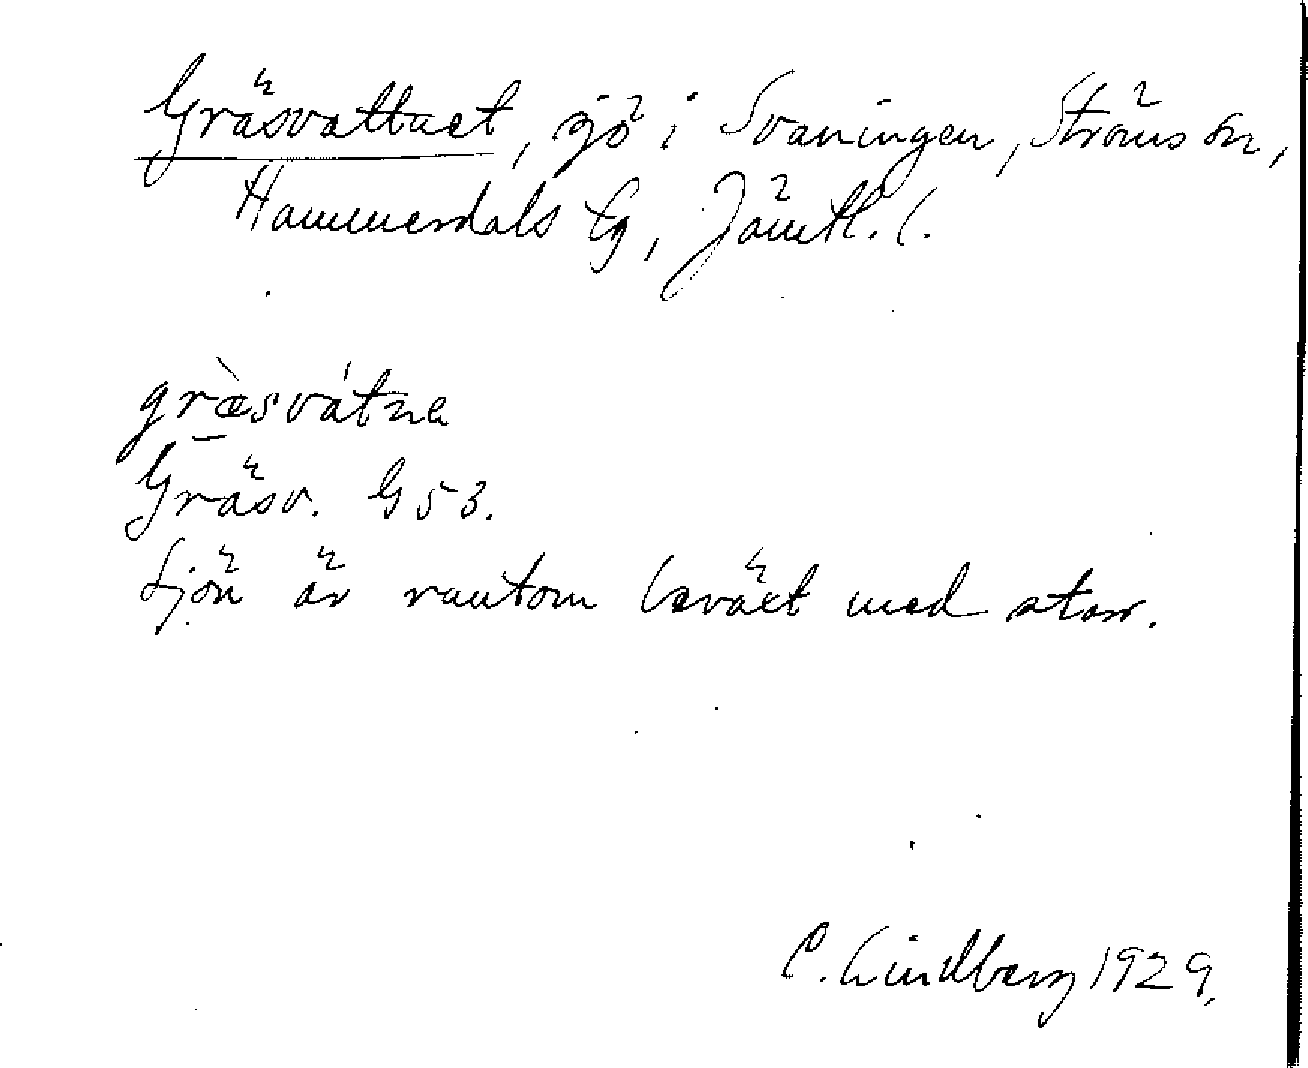 Gräsvattnet, sjö i Svaningen, Ströms sn,
Hammerdals tg, Jämtl. l.
græ̀svátne
Gräsv. G 53.
Sjön är runtom beväxt med starr.
C. Lindberg 1929.